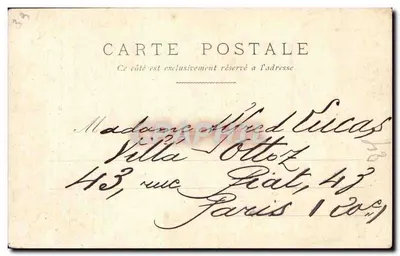 33
CARTE POSTALE
Ce côté est exclusivement réservé a l'adresse
Madame Alfred Lucas
Villa Ottoz
43, rue Piat, 43
Paris (20e)